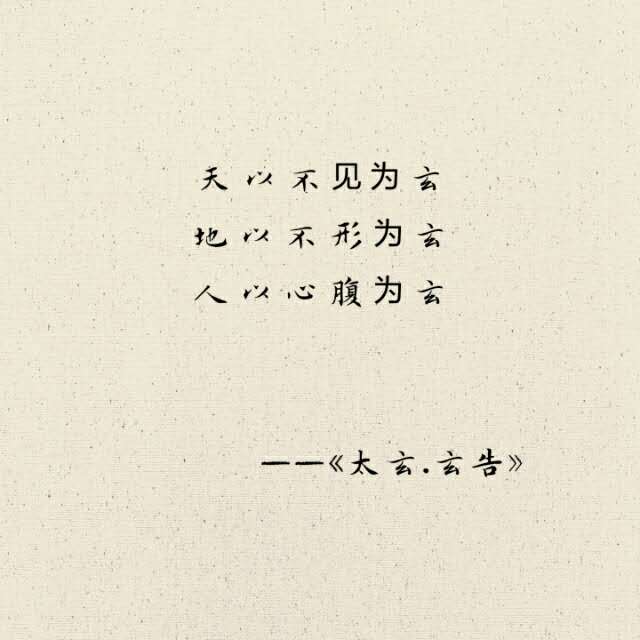 夫以不见为玄
地以不形为玄
人以心腹为玄
——《太玄.玄告》